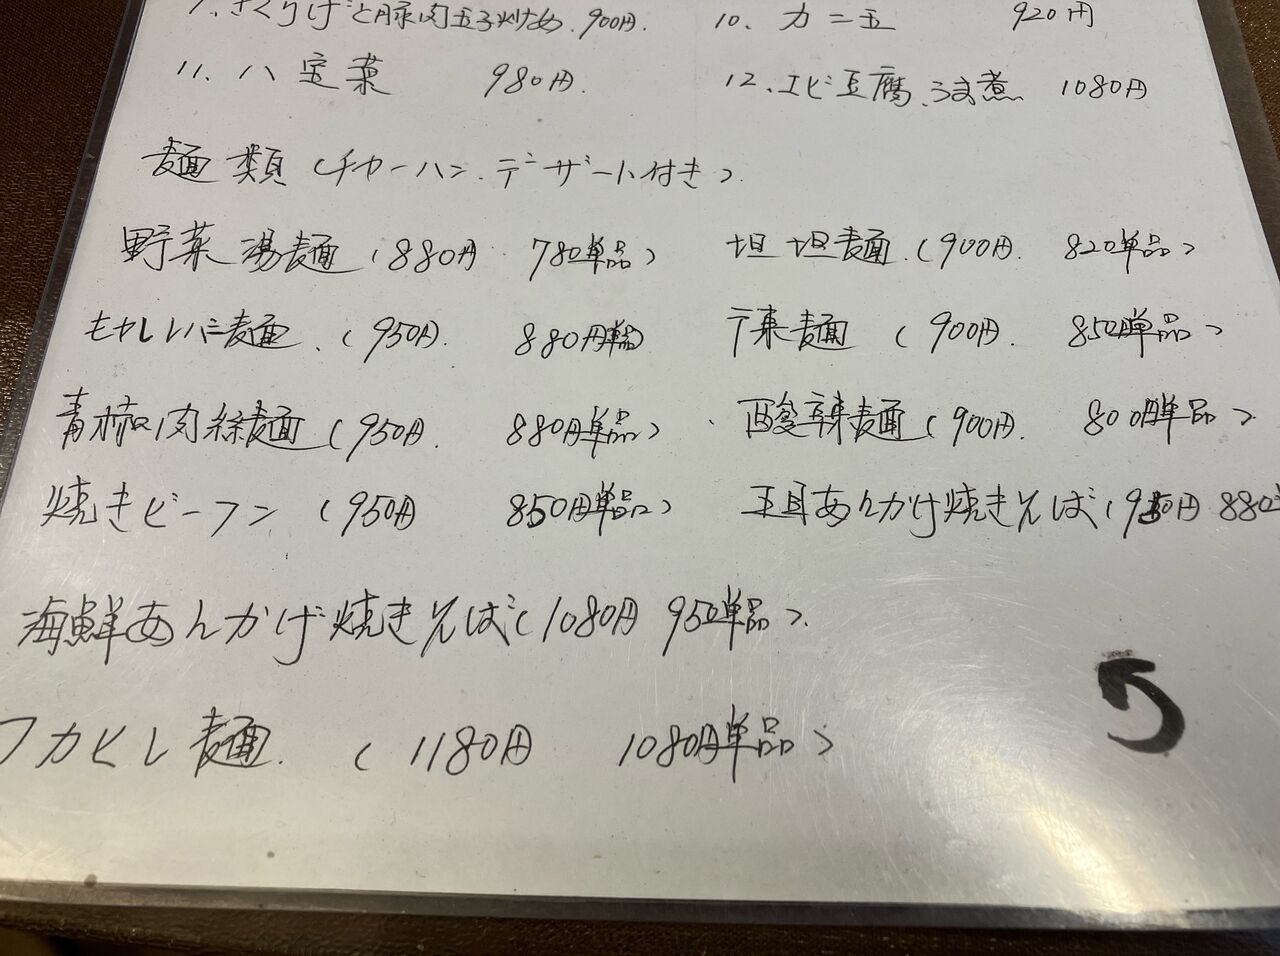 きくらげと豚肉玉子炒め. 900円. 10. カニ玉 920円
11. 八宝菜 980円. 12. エビ豆腐うま煮 1080円
麺類(チャーハン.デザート付き)
野菜湯麺(880円 780単品) 坦坦麺.(900円. 820単品)
モヤシレバニラ麺.(950円. 880円単品) 辣麺(900円. 850円単品)
青椒肉絲麺(950円. 880円単品) 酸辣麺(900円. 800円単品)
焼きビーフン(950円 850円単品) 五目あんかけ焼きそば(950円 880
海鮮あんかけ焼きそば(1080円 950単品)
フカヒレ麺.(1180円 1080円単品)